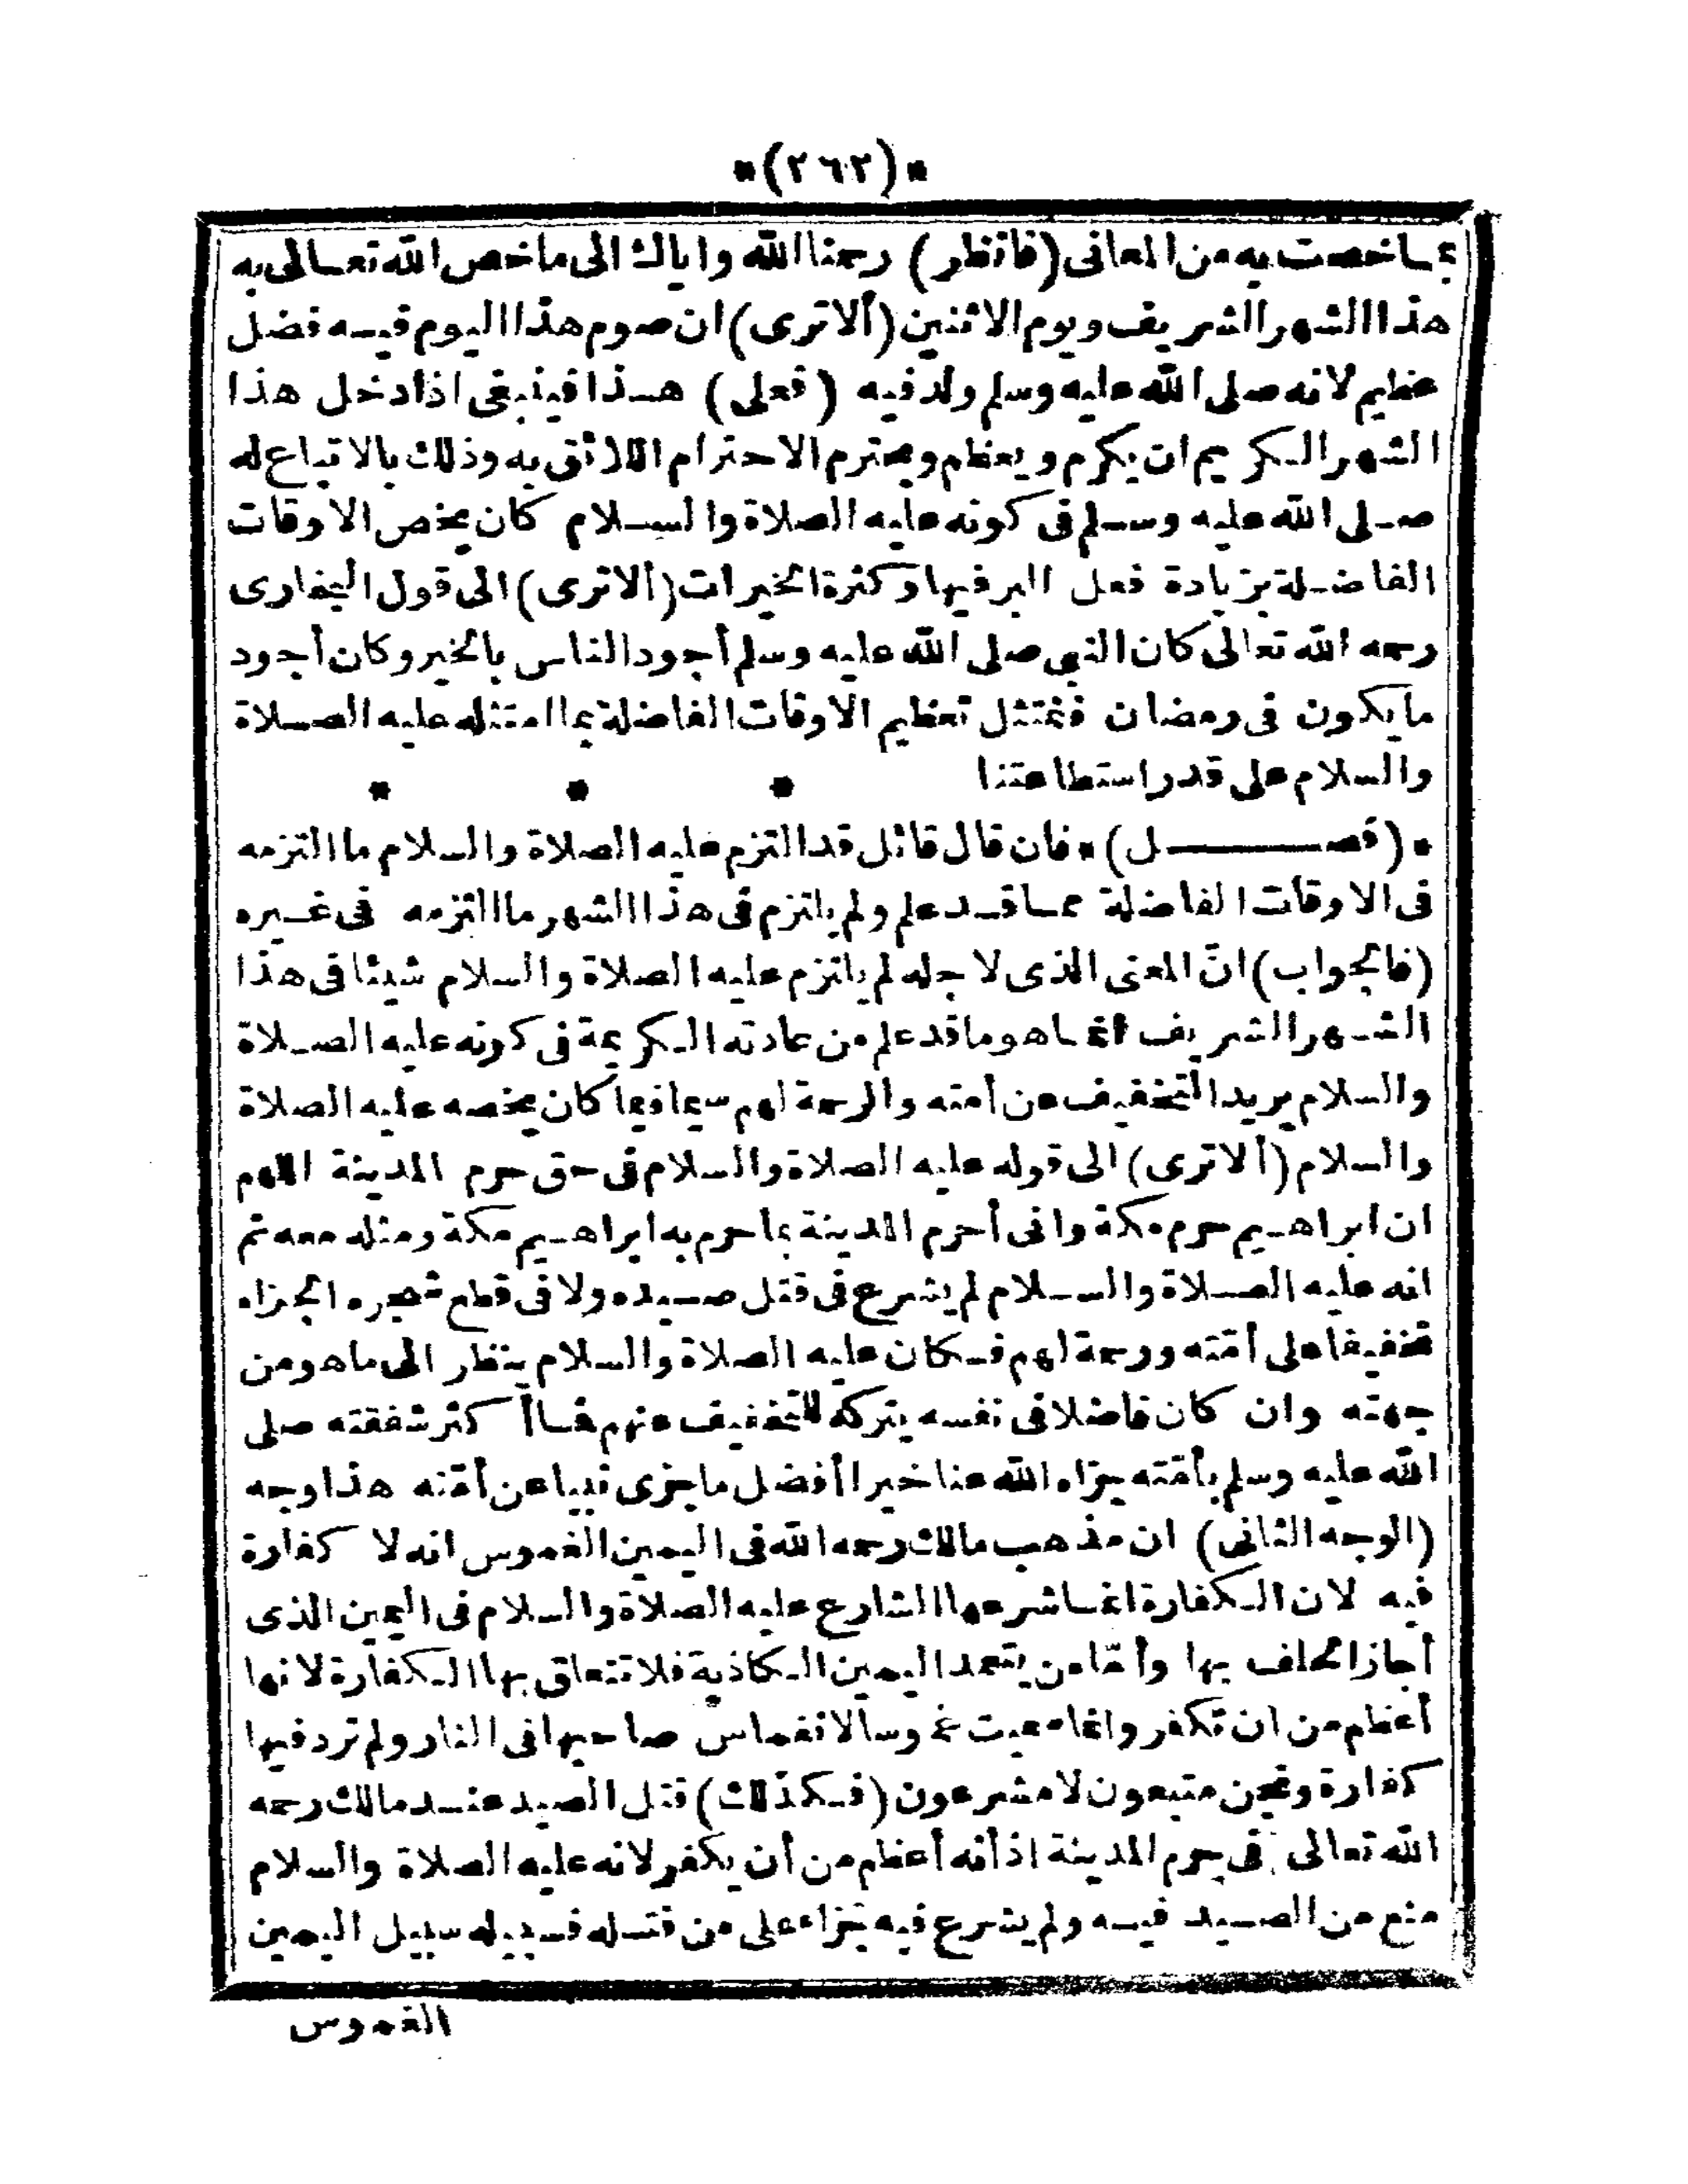 *(٢٦٢)*
بما خصت به من المعانى (فانظر) رحمنا الله واياك الى ما خص الله تعالى به
هذا الشهر الشريف ويوم الاثنين (ألا ترى) ان صوم هذا اليوم فيه فضل
عظيم لانه صلى الله عليه وسلم ولد فيه (فعلى) هذا فينبغى اذا دخل هذا
الشهر الكريم ان يكرم ويعظم ويحترم الاحترام اللائق به وذلك بالاتباع له
صلى الله عليه وسلم فى كونه عليه الصلاة والسلام كان يخص الاوقات
الفاضلة بزيادة فعل البر فيها وكثرة الخيرات (ألا ترى) الى قول البخارى
رحمه الله تعالى كان النبى صلى الله عليه وسلم أجود الناس بالخير وكان أجود
ما يكون فى رمضان فنمتثل تعظيم الاوقات الفاضلة بما امتثله عليه الصلاة
والسلام على قدر استطاعتنا * * *
*(فصل)* فان قال قائل قد التزم عليه الصلاة والسلام ما التزمه
فى الاوقات الفاضلة مما قد علم ولم يلتزم فى هذا الشهر ما التزمه فى غيره
(فالجواب) انّ المعنى الذى لاجله لم يلتزم عليه الصلاة والسلام شيئا فى هذا
الشهر الشريف انما هو ما قد علم من عادته الكريمة فى كونه عليه الصلاة
والسلام يريد التخفيف عن أمته والرحمة لهم سيما فيما كان يخصه عليه الصلاة
والسلام (ألا ترى) الى قوله عليه الصلاة والسلام فى حق حرم المدينة اللهم
ان ابراهيم حرم مكة وانى أحرم المدينة بما حرم به ابراهيم مكة ومثله معه ثم
انه عليه الصلاة والسلام لم يشرع فى قتل صيده ولا فى قطع شجره الجزاء
تخفيفا على أمّته ورحمة لهم فكان عليه الصلاة والسلام ينظر الى ما هو من
جهته وان كان فاضلا فى نفسه يتركه للتخفيف عنهم فما أكثر شفقته صلى
الله عليه وسلم بأمّته جزاه الله عنا خيرا أفضل ما جزى نبيا عن أمّته هذا وجه
(الوجه الثانى) ان مذهب مالك رحمه الله فى اليمين الغموس انه لا كفارة
فيه لان الكفارة انما شرعها الشارع عليه الصلاة والسلام فى اليمين الذى
أجاز الحلف بها وأمّا من يتعمد اليمين الكاذبة فلا تتعلق بها الكفارة لانها
أعظم من ان تكفر وانما سميت غموسا لانغماس صاحبها فى النار ولم ترد فيها
كفارة ونحن متبعون لا مشرعون (فكذلك) قتل الصيد عند مالك رحمه
الله تعالى فى حرم المدينة اذ أنه أعظم من أن يكفر لانه عليه الصلاة والسلام
منع من الصيد فيه ولم يشرع فيه جزاء على من قتله فسبيله سبيل اليمين
الغموس